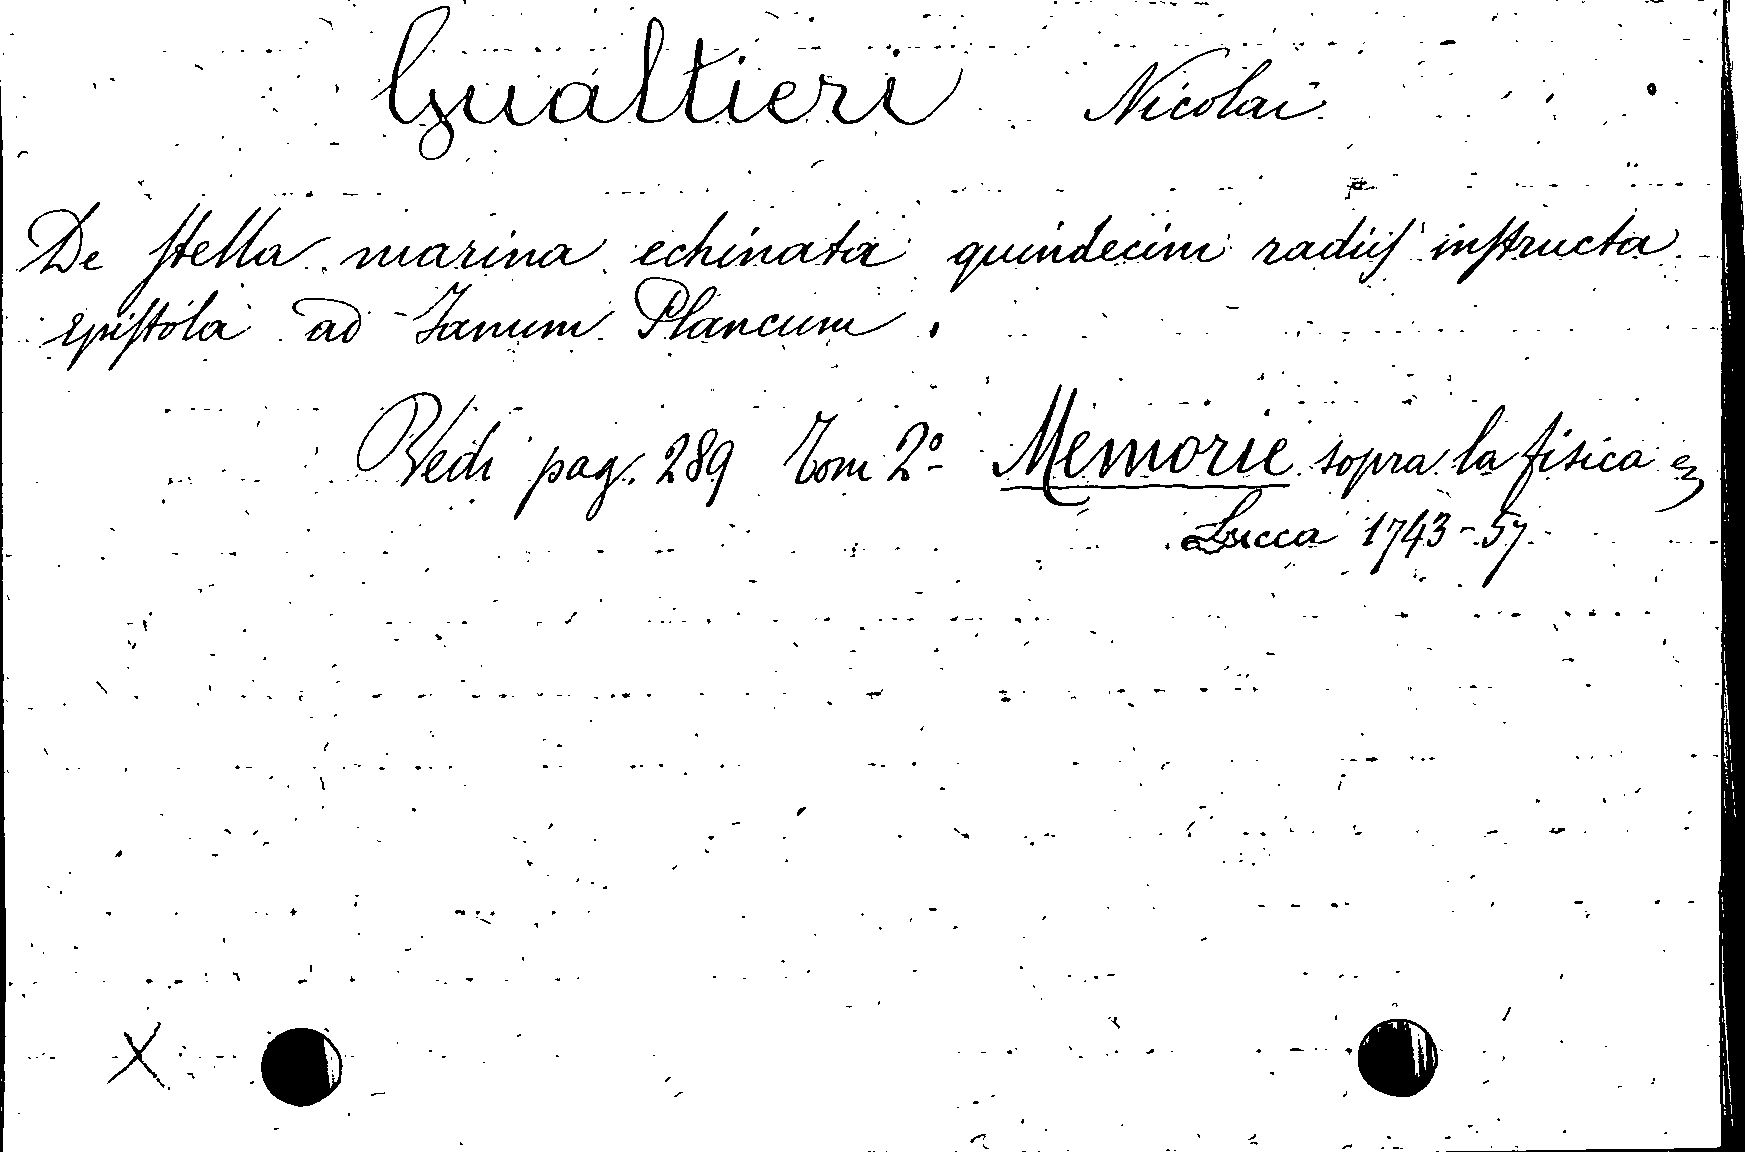 Gualtieri Nicolai
De ſtella marina echinata quindecim radiiſ inſtructa
epiſtola ad Ianum Plancum.
Vedi pag. 289 Tom 2º Memorie sopra la fisica
Lucca 1743-57
X